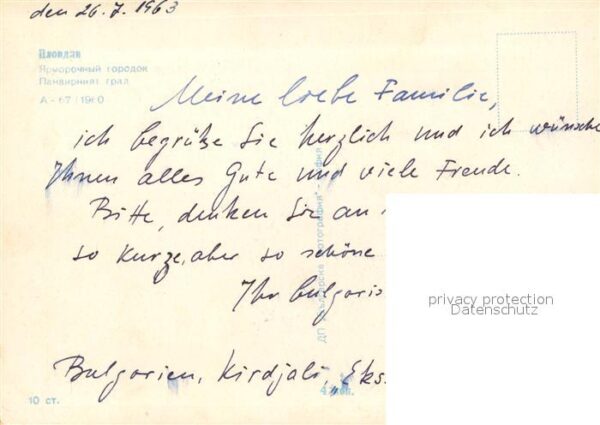 den 26.7.1963
Пловдив
Ярмарочный городок
Панаирният град
А - 67 / 1960
Meine liebe Familie,
ich begrüße Sie herzlich und ich wünsche
Ihnen alles Gute und viele Freude.
Bitte, denken Sie an
so kurze, aber so schöne
Ihr bulgaris
Bulgarien, Kirdjali, „Eks.
10 ст.
privacy protection
Datenschutz